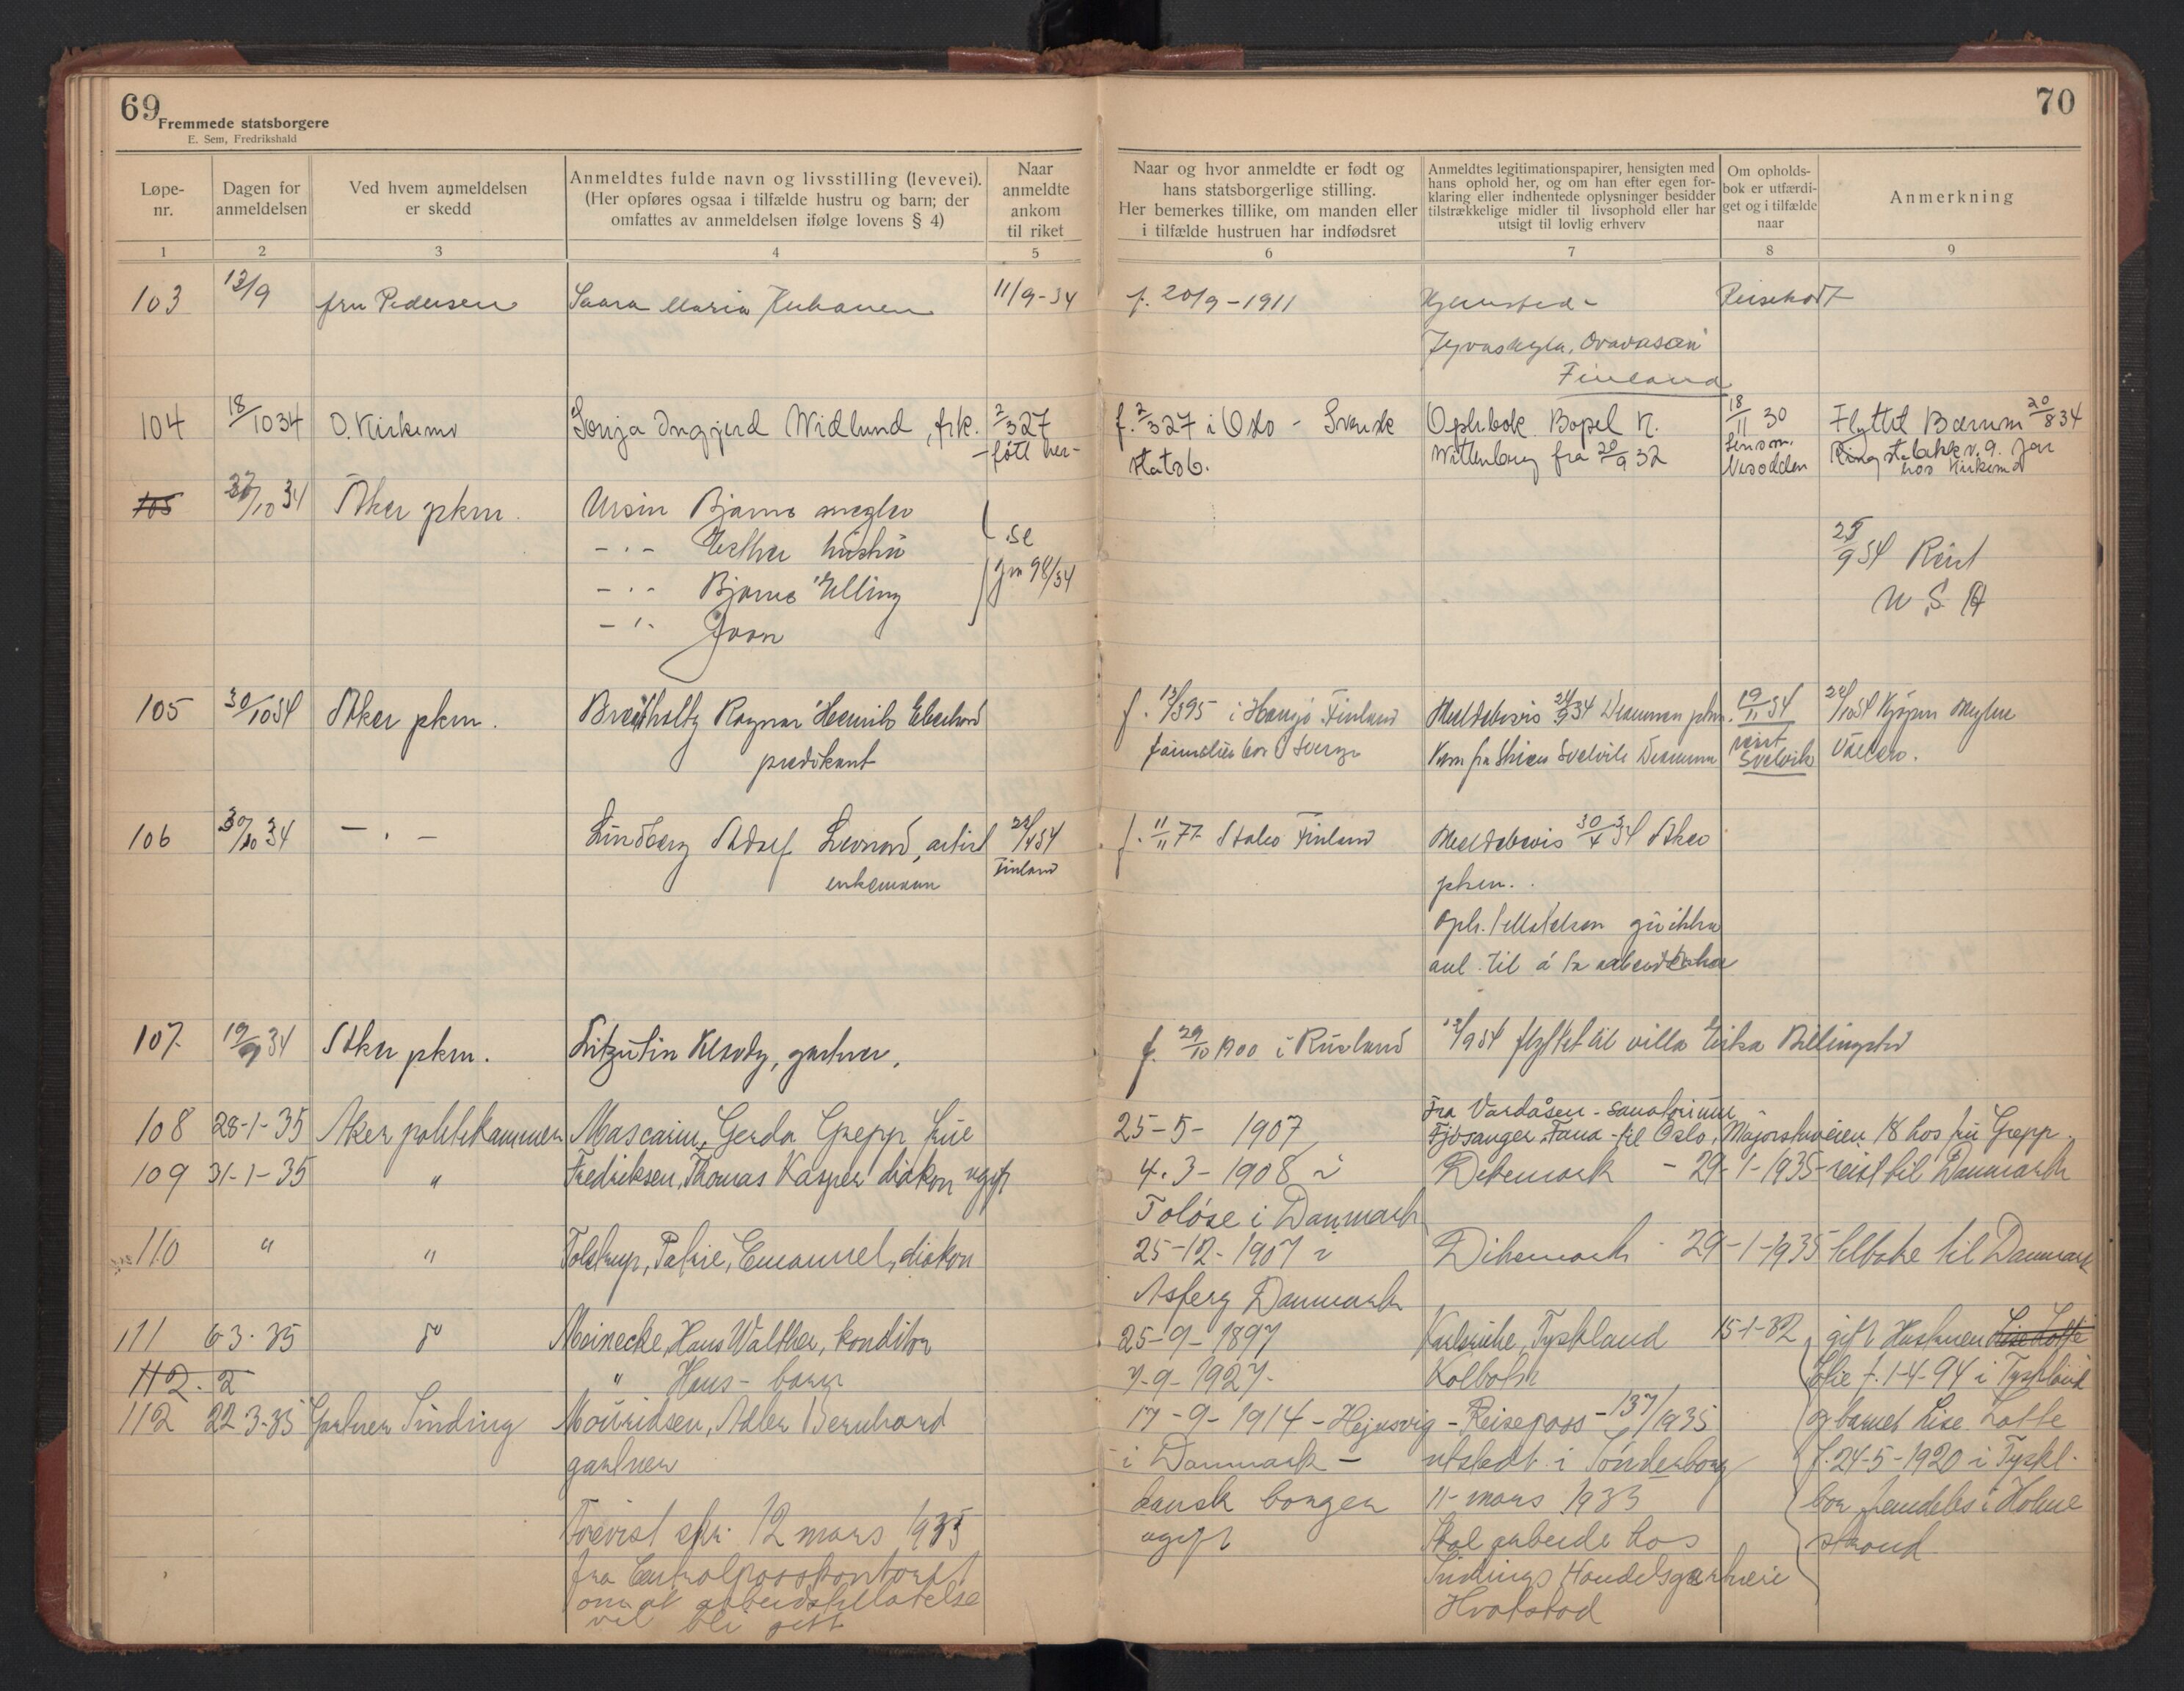 69
Fremmede statsborgere
E. Sem, Fredrikshald
70
Løpe-
nr.
Dagen for
anmeldelsen
Ved hvem anmeldelsen
er skedd
Anmeldtes fulde navn og livsstilling (levevei).
(Her opføres ogsaa i tilfælde hustru og barn; der
omfattes av anmeldelsen ifølge lovens § 4)
Naar
anmeldte
ankom
til riket
Naar og hvor anmeldte er født og
hans statsborgerlige stilling.
Her bemerkes tillike, om manden eller
i tilfælde hustruen har indfødsret
Anmeldtes legitimationspapirer, hensigten med
hans ophold her, og om han efter egen for-
klaring eller indhentede oplysninger besidder
tilstrækkelige midler til livsophold eller har
utsigt til lovlig erhverv
Om opholds-
bok er utfærdi-
get og i tilfælde
naar
Anmerkning
1 2 3 4 5 6 7 8 9
103 13/9 fru Pedersen Saara Maria 11/9-34 f. 20/9-1911 Reisekort
Finland
104 18/10 34 O. Kirkemo Sonja Inggjerd Widlund, frk. 2/3 27 f. 2/3 27 i Oslo - Svensk Ophbok Bopel N. 18/11 30 Flyttet Bærum 20/8 34
- født her - statsb. Wittenberg fra 20/9 32 Nesodden Ringstabekk v. 9. Jar
hos Kirkemo
105 /10 34 Aker pkm. Ursin Bjarne megler
-"- Esther hustru se
-"- Bjarne Elling jnr 98/34
-"- Joan
25/9 34 Reist
U S A
105 30/10 34 Aker pkm. Ragnar Henrik Eberhard f. 13/3 95 i Hangø Finland Meldebevis 24/9 34 Drammen pkm. 19/11 34 20/10 34 Kjøpm
predikant familien bor i Sverige Kom fra Svelvik Drammen reist
Svelvik
106 30/10 34 - " - Lindberg Adolf Leonard, artist f. 11/11 77 Finland Meldebevis 30/4 34 Aker
enkemann Finland pkm.
Oph. tillatelsen gir ikke
anl. til å ta arbeide her
107 19/9 34 Aker pkm. gartner. f. 29/10 1900 i Rusland 13/9 34 flyttet til villa Erika Billingstad
108 28-1-35 Aker politikammer Mascarin, Gerda Grepp frue 25-5-1907 Fra Vardåsen-sanatorium
Fjøsanger, Fana - til Oslo, Majorstuveien 18 hos fru Grepp.
109 31-1-35 " Fredriksen, Thomas Kasper diakon ugift 4.3-1908 i Dikemark - 29-1-1935 reist til Danmark
Toløse i Danmark
110 " " Tolstrup, Emanuel, diakon 25-12-1907 i Dikemark - 29-1-1935 tilbake til Danmark
Asferg Danmark
111 6 3-35 do Meinecke, Hans Walther, konditor 25-9-1897 Karlsruhe, Tyskland 15-1-32 gift Hustruen Lise Lotte
112. 2 " Hans - barn 7-9-1927- Kolbotn f. 1-4-94 i Tyskland
112 22-3-35 Gartner Sinding Mouridsen, Adler Bernhard 17-9-1914 - Hejnsvig - Reisepass - 137/1935 og barnet Lise Lotte
gartner i Danmark - utstedt i Sønderborg f. 24-5-1920 i Tyskl.
dansk borger 11 mars 1933 bor fremdeles i Holme
Forevist skr. 12 mars 1935 ugift Skal arbeide hos strand
fra Centralpasskontoret Sindings Handelsgartneri
om at arbeidstillatelse Hvalstad
vil bli gitt